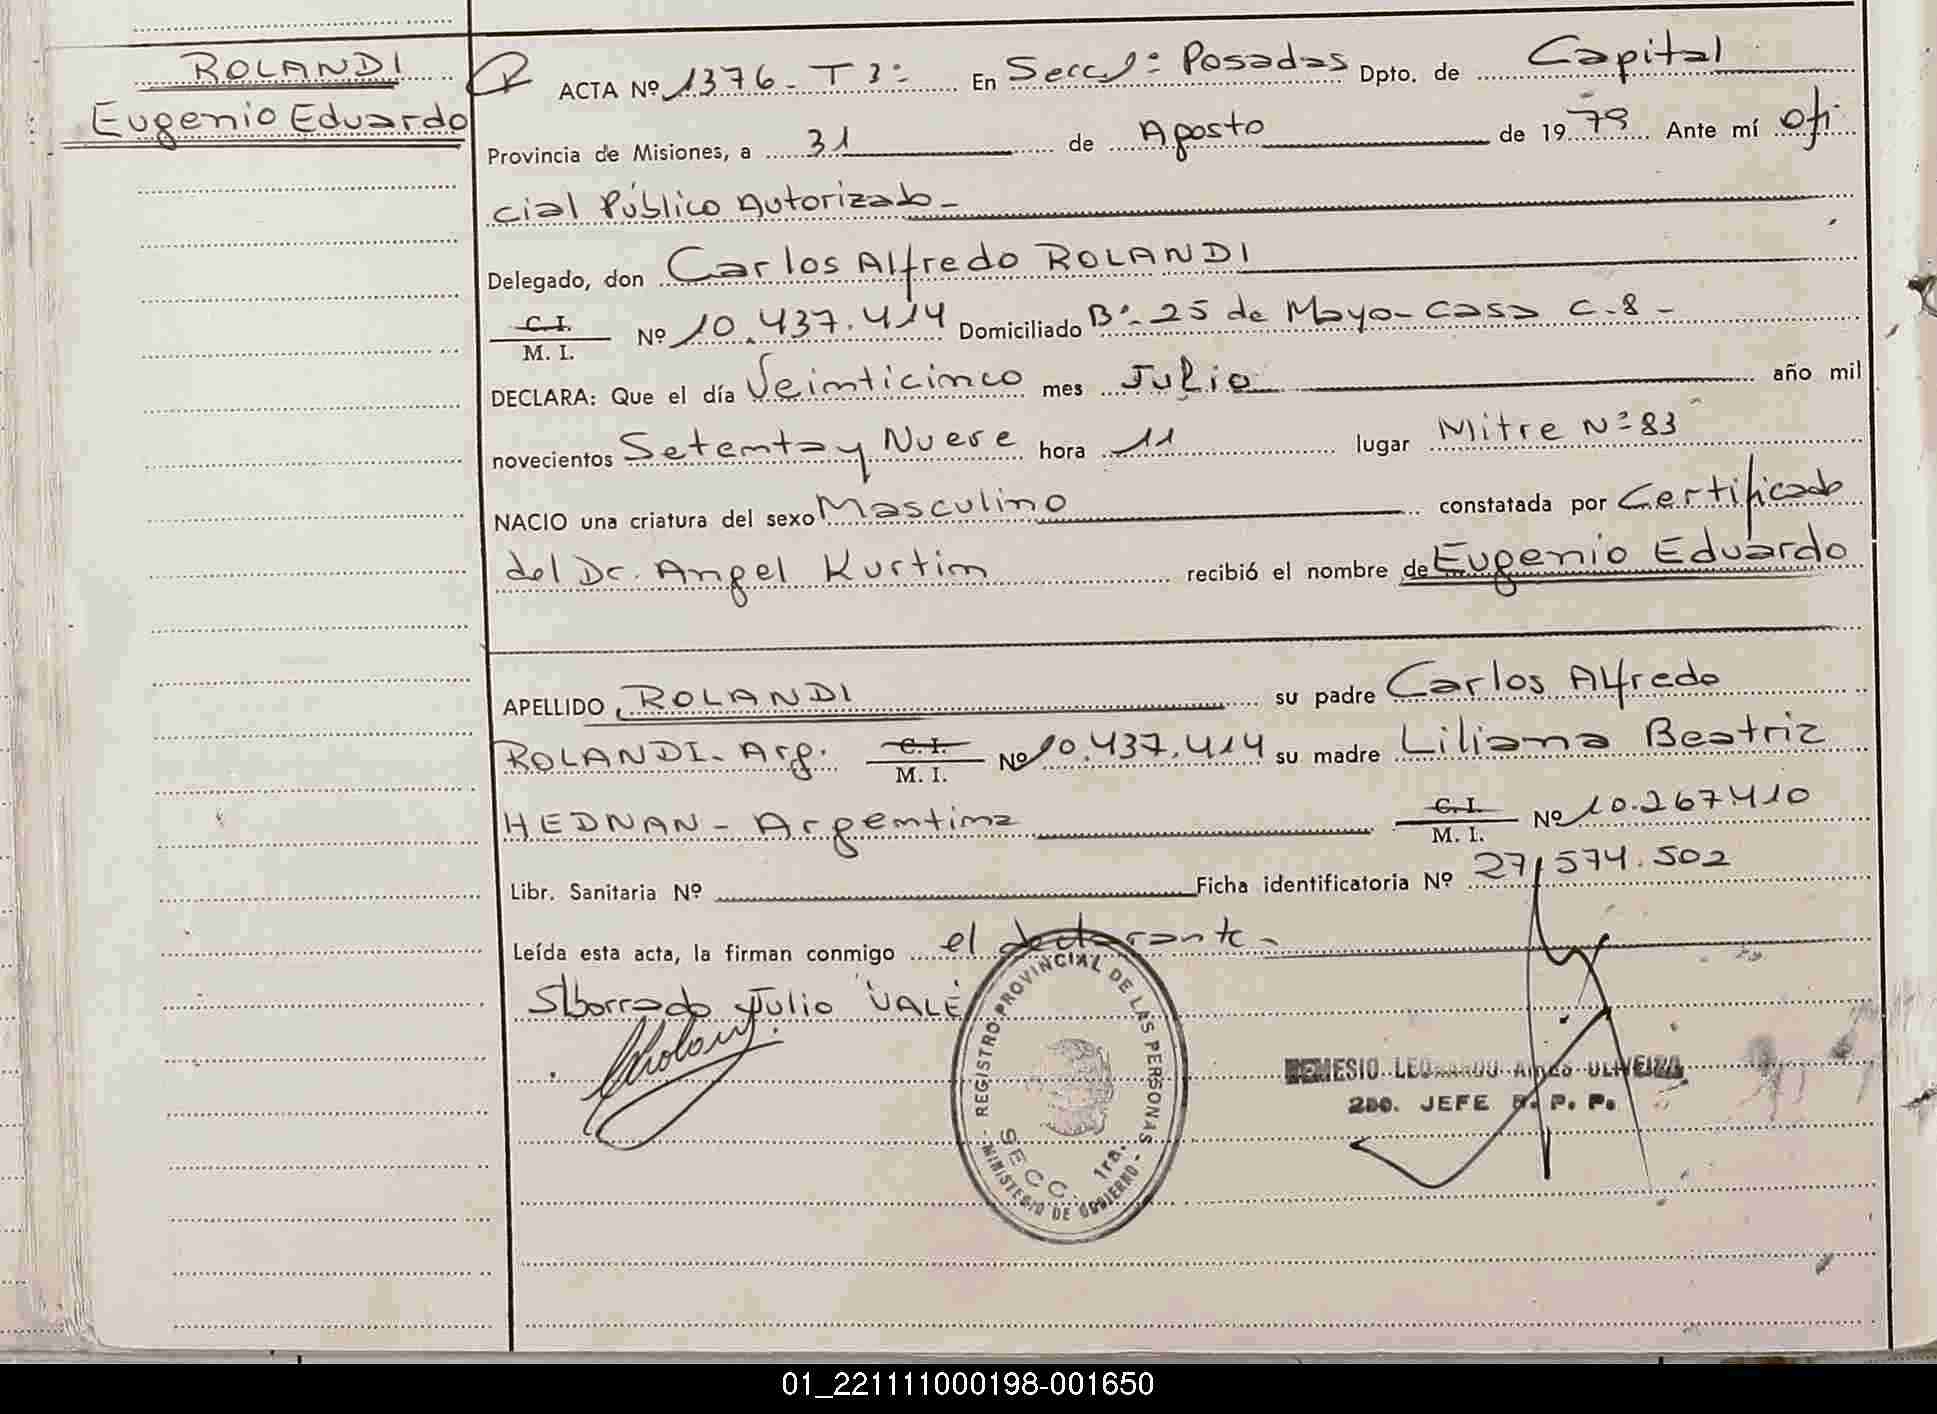 ROLANDI
Eugenio Eduardo
ACTA Nº 1376 - T 3º En Secc 1ª Posadas Dpto. de Capital
Provincia de Misiones, a 31 de Agosto de 1979 Ante mí Ofi
cial Público Autorizado -
Delegado, don Carlos Alfredo ROLANDI
C. I.
M. I. Nº 10.437.414 Domiciliado Bº - 25 de Mayo - Casa C-8 -
DECLARA: Que el día Veinticinco mes Julio año mil
novecientos Setenta y Nueve hora 11 lugar Mitre Nº 83
NACIO una criatura del sexo Masculino constatada por Certificado
del Dr. Angel Kurtin recibió el nombre de Eugenio Eduardo
APELLIDO ROLANDI su padre Carlos Alfredo
ROLANDI - Arg. C. I. M. I. Nº 10.437.414 su madre Liliana Beatriz
HEDNAN - Argentina C. I. M. I. Nº 10.267410
Libr. Sanitaria Nº Ficha identificatoria Nº 27.574.502
Leída esta acta, la firman conmigo el declarante -
S/borrado Julio VALE
REGISTRO PROVINCIAL DE LAS PERSONAS
SECC. 1ra.
MINISTERIO DE GOBIERNO
LEONARDO
2do. JEFE R. P. P.
01_221111000198-001650